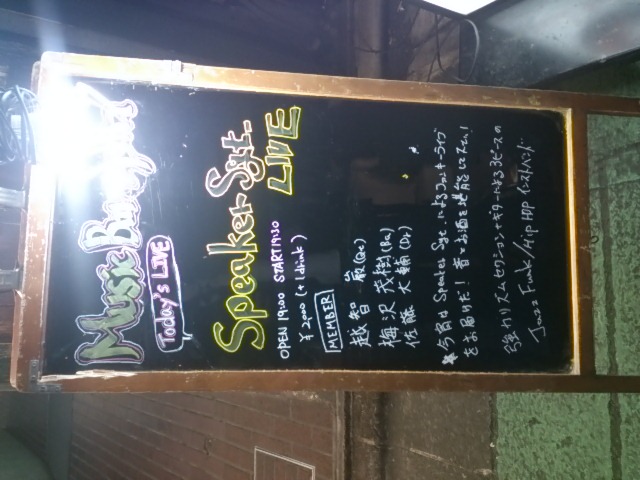 Music
Today's LIVE
Speaker Sgt.
LIVE
OPEN 19:00 START 19:30
¥2,000 (+1drink)
MEMBER
越智 巌 (Gt)
梅沢茂樹 (Ba)
佐藤大輔 (Dr)
※今宵は Speaker Sgt. によるファンキーライブ
をお届けだ! 音とお酒を堪能して下さい!
強力リズムセクション+ギターによる3ピースの
Jazz Funk/HIP HOP インストバンド